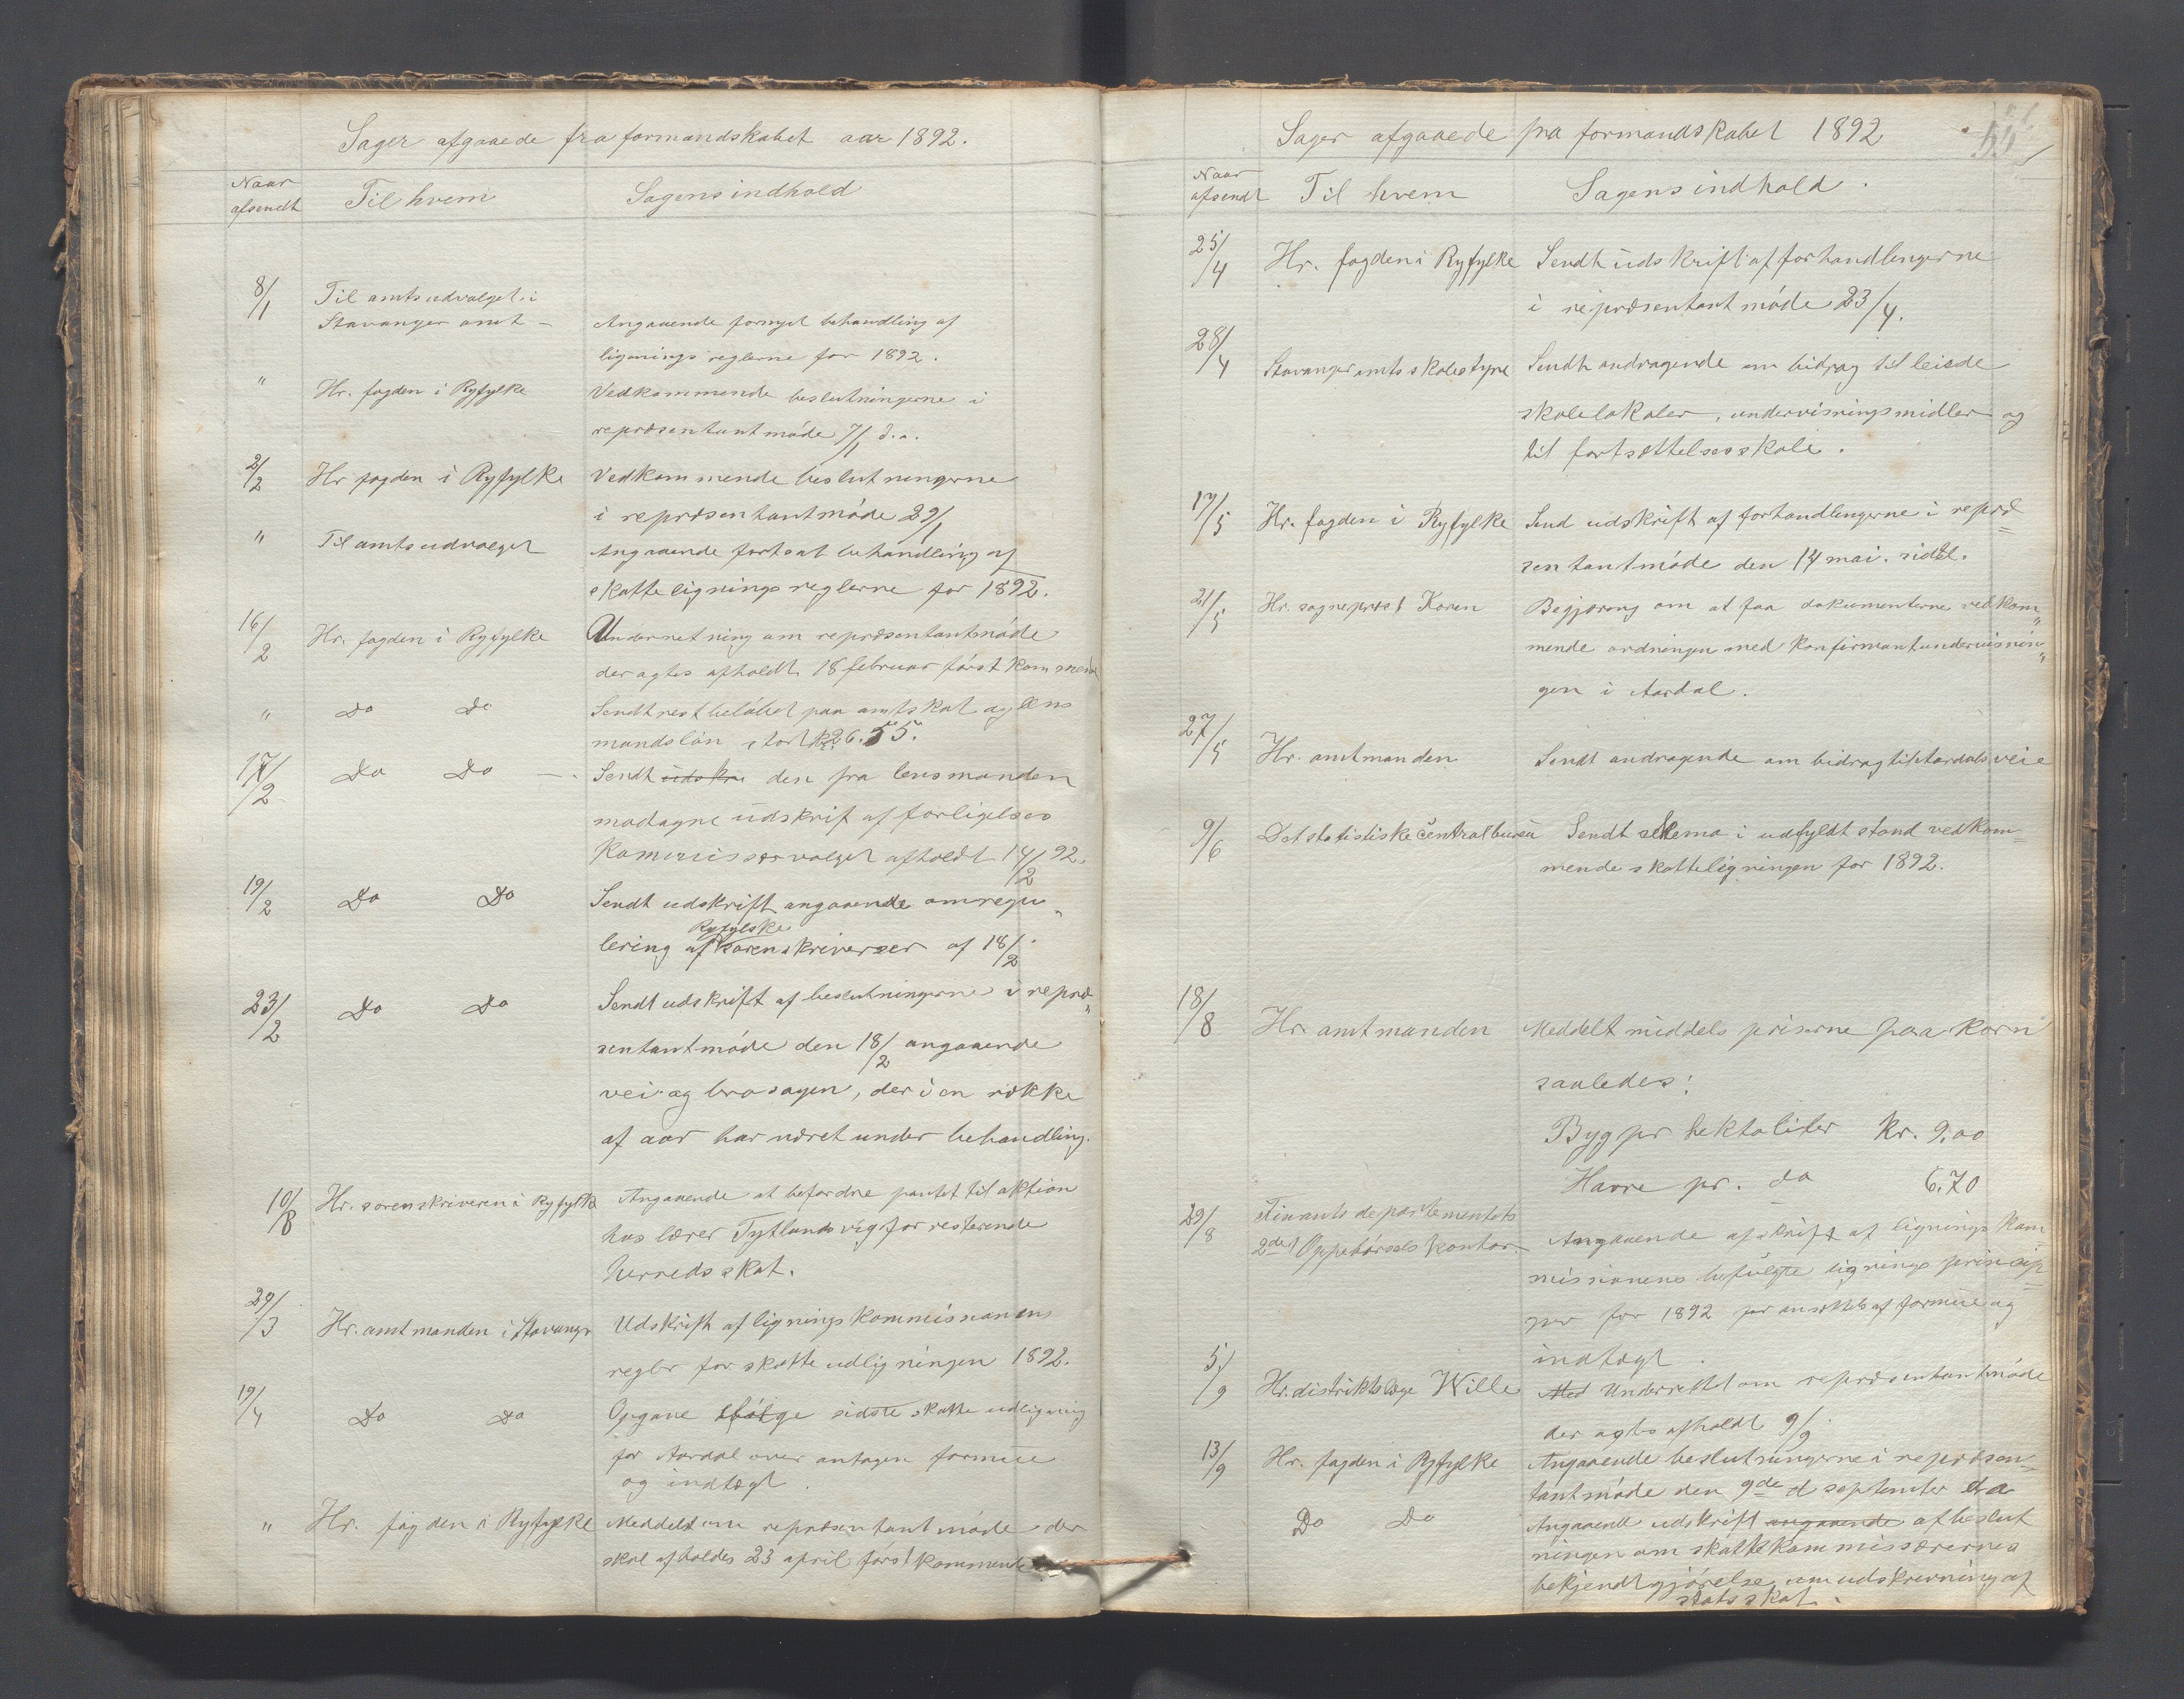 Sager afgaaede fra formandskabet aar 1892.
Naar
afsendt
Til hvem
Sagens indhold
8/1
Til amtsudvalget i
Stavanger amt –
Angaaende fornyet behandling af
ligningsreglerne for 1892.
" Hr. fogden i Ryfylke Vedkommende beslutningerne i
repræsentantmøde 7/1 d.a.
2/2 Hr fogden i Ryfylke Vedkommende beslutningerne
i repræsentantmøde 29/1
" Til amtsudvalget Angaaende fortsat behandling af
skatteligningsreglerne for 1892.
16/2 Hr. fogden i Ryfylke Underretning om repræsentantmøde
der agtes afholdt 18 februar først kommend
" Do Do Sendt restbeløbet paa amtskat og lens
mandsløn stort kr. 26.55.
17/2 Do Do –. Sendt udskri den fra lensmanden
modagne udskrif af forligelses
kommissærvalget afholdt 14/2 92.
19/2 Do Do Sendt udskrift angaaende omregu„
Ryfylske
lering af sorenskriverier af 18/2.
23/2 Do Do Sendt udskrift af beslutningerne i repræ„
sentantmøde den 18/2 angaaende
vei- og brosagen, der i en række
af aar har været under behandling.
10/3 Hr. sorenskriveren i Ryfylke Angaaende at befordre pantet til aktion
hos lærer Tytlandsvig for resterende
herredsskat.
29/3 Hr. amtmanden i Stavanger Udskrift af ligningskommisionens
regler for skatteudligningen 1892.
19/4 Do Do Opgave ifølge sidste skatteudligning
for Aardal over antagen formue
og indtægt.
" Hr. fogden i Ryfylke Meddelt om repræsentantmøde der
skal afholdes 23 april først kommende
Sager afgaaede fra formandskabet 1892
Naar
afsendt
Til hvem
Sagens indhold.
25/4 Hr. fogden i Ryfylke Sendt udskrift af forhandlingerne
i repræsentantmøde 23/4.
28/4 Stavanger amts skolestyre Sendt andragende om bidrag til leiede
skolelokaler, undervisningsmidler og
til fortsættelsesskole.
17/5 Hr. fogden i Ryfylke Send udskrift af forhandlingerne i repræ=
sentantmøde den 14 mai. sidstl.
21/5 Hr. sogneprest Koren Begjæring om at faa dokumenterne vedkom„
mende ordningen med konfirmantundervisnin„
gen i Aardal.
27/5 Hr. amtmanden Sendt andragende om bidrag til Aardals veie
9/6 Det statistiske centralbureu Sendt skema i udfyldt stand vedkom=
mende skatteligningen for 1892.
18/8 Hr. amtmanden Meddelt middelspriserne paa korn
saaledes:
Byg pr hektoliter kr. 9.00
Havre pr. do 6.70
29/8 Finantsdepartementets
2det Oppebørselskontor Angaaende afskrift af ligningskom=
missionens befulgte ligningsprincip=
per for 1892 for ansættels af formue og
indtægt.
5/9 Hr. distriktslæge Wille Med Underrettet om repræsentantmøde
der agtes afholdt 9/9.
13/9 Hr. fogden i Ryfylke Angaaende beslutningerne i repræsen=
tantmøde den 9de d september d a
Do Do Angaaende udskrift angaaende af beslut
ningen om skattekommissærernes
bekjendtgjørelse om udskrivning af
statsskat.